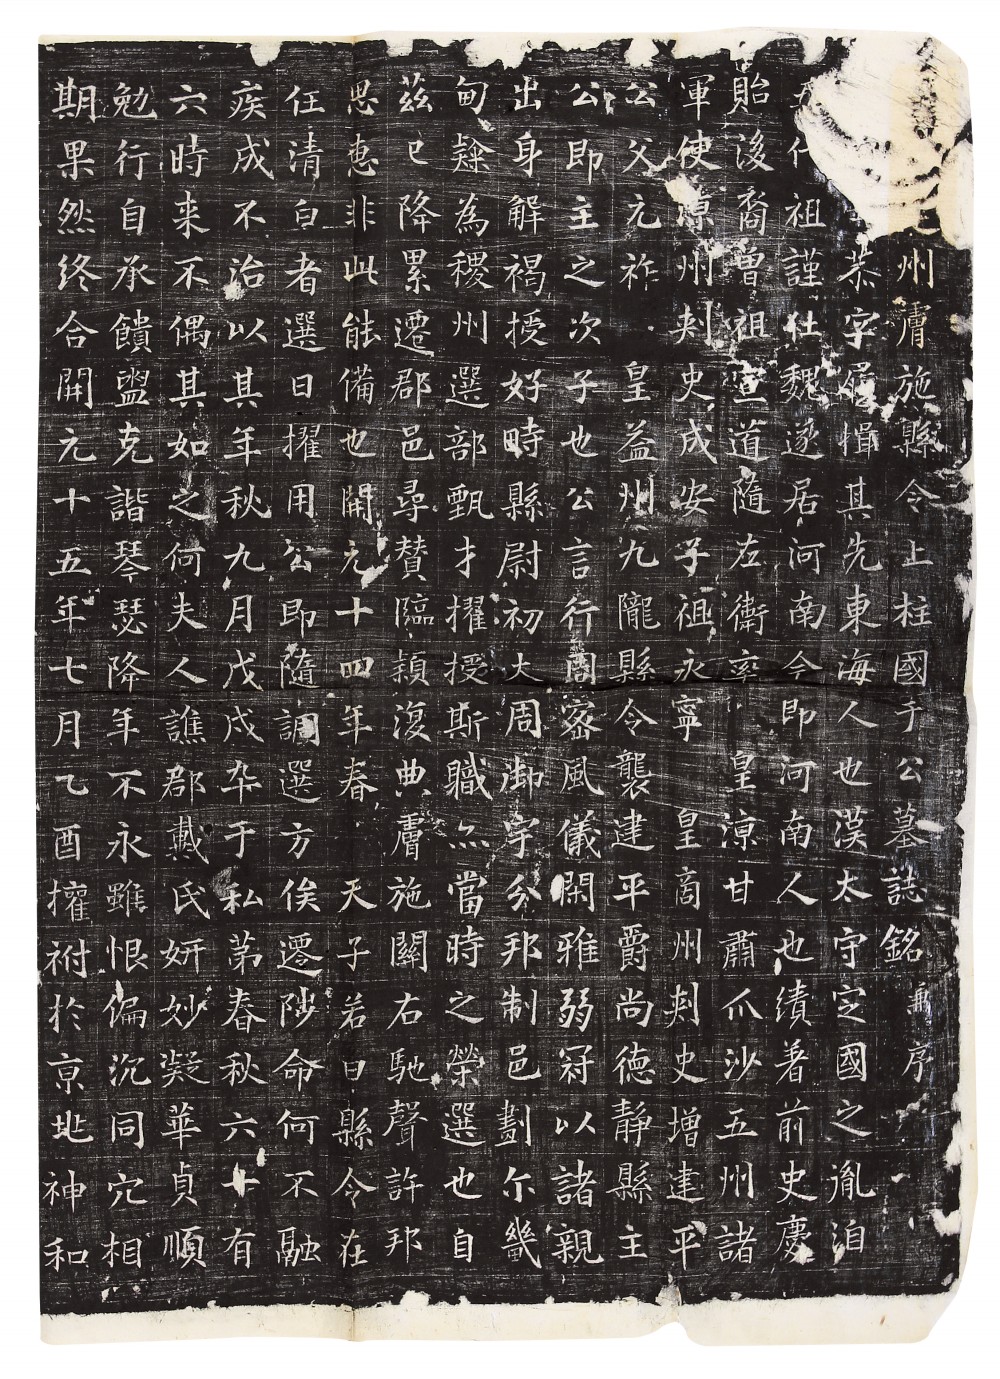 州膚施縣令上柱國于公墓誌銘兼序
恭字履楫其先東海人也漢太守定國之胤洎
五代祖謹仕魏遂居河南今即河南人也績著前史慶
貽後裔曾祖宣道隨左衛率皇涼甘肅瓜沙五州諸
軍使涼州刺史成安子祖永寧皇商州刺史增建平
公父元祚皇益州九隴縣令襲建平爵尚德靜縣主
公即主之次子也公言行周密風儀閑雅弱冠以諸親
出身解褐授好畤縣尉初大周御宇分邦制邑劃尔畿
甸韡為稷州選部甄才擢授斯職亦當時之榮選也自
茲已降累遷郡邑尋贊臨潁復典膚施關右馳聲許邦
思惠非此能備也開元十四年春天子若曰縣令在
任清白者選日擢用公即隨調選方俟遷陟命何不融
疾成不治以其年秋九月戊戌卒于私第春秋六十有
六時来不偶其如之何夫人譙郡戴氏妍妙凝華貞順
勉行自承饋盥克諧琴瑟降年不永雖恨偏沉同穴相
期果然终合開元十五年七月乙酉權祔於京地神和